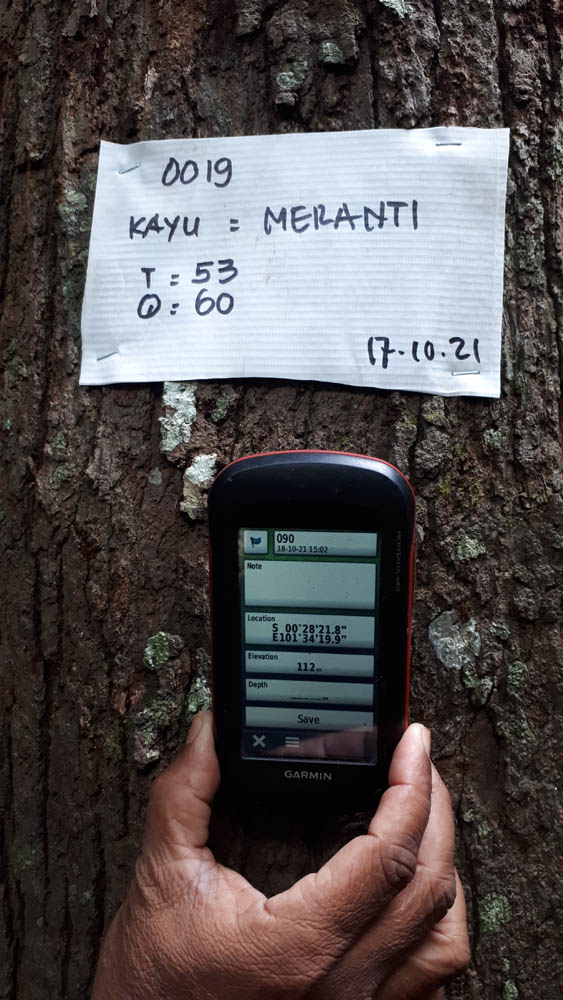 0019
KAYU = MERANTI
T = 53
Ø = 60
17.10.21
090
18-10-21 15:02
Note
Location
S 00°28'21.8"
E101°34'19.9"
Elevation
112m
Depth
_____m
Save
GARMIN
MONTANA 680